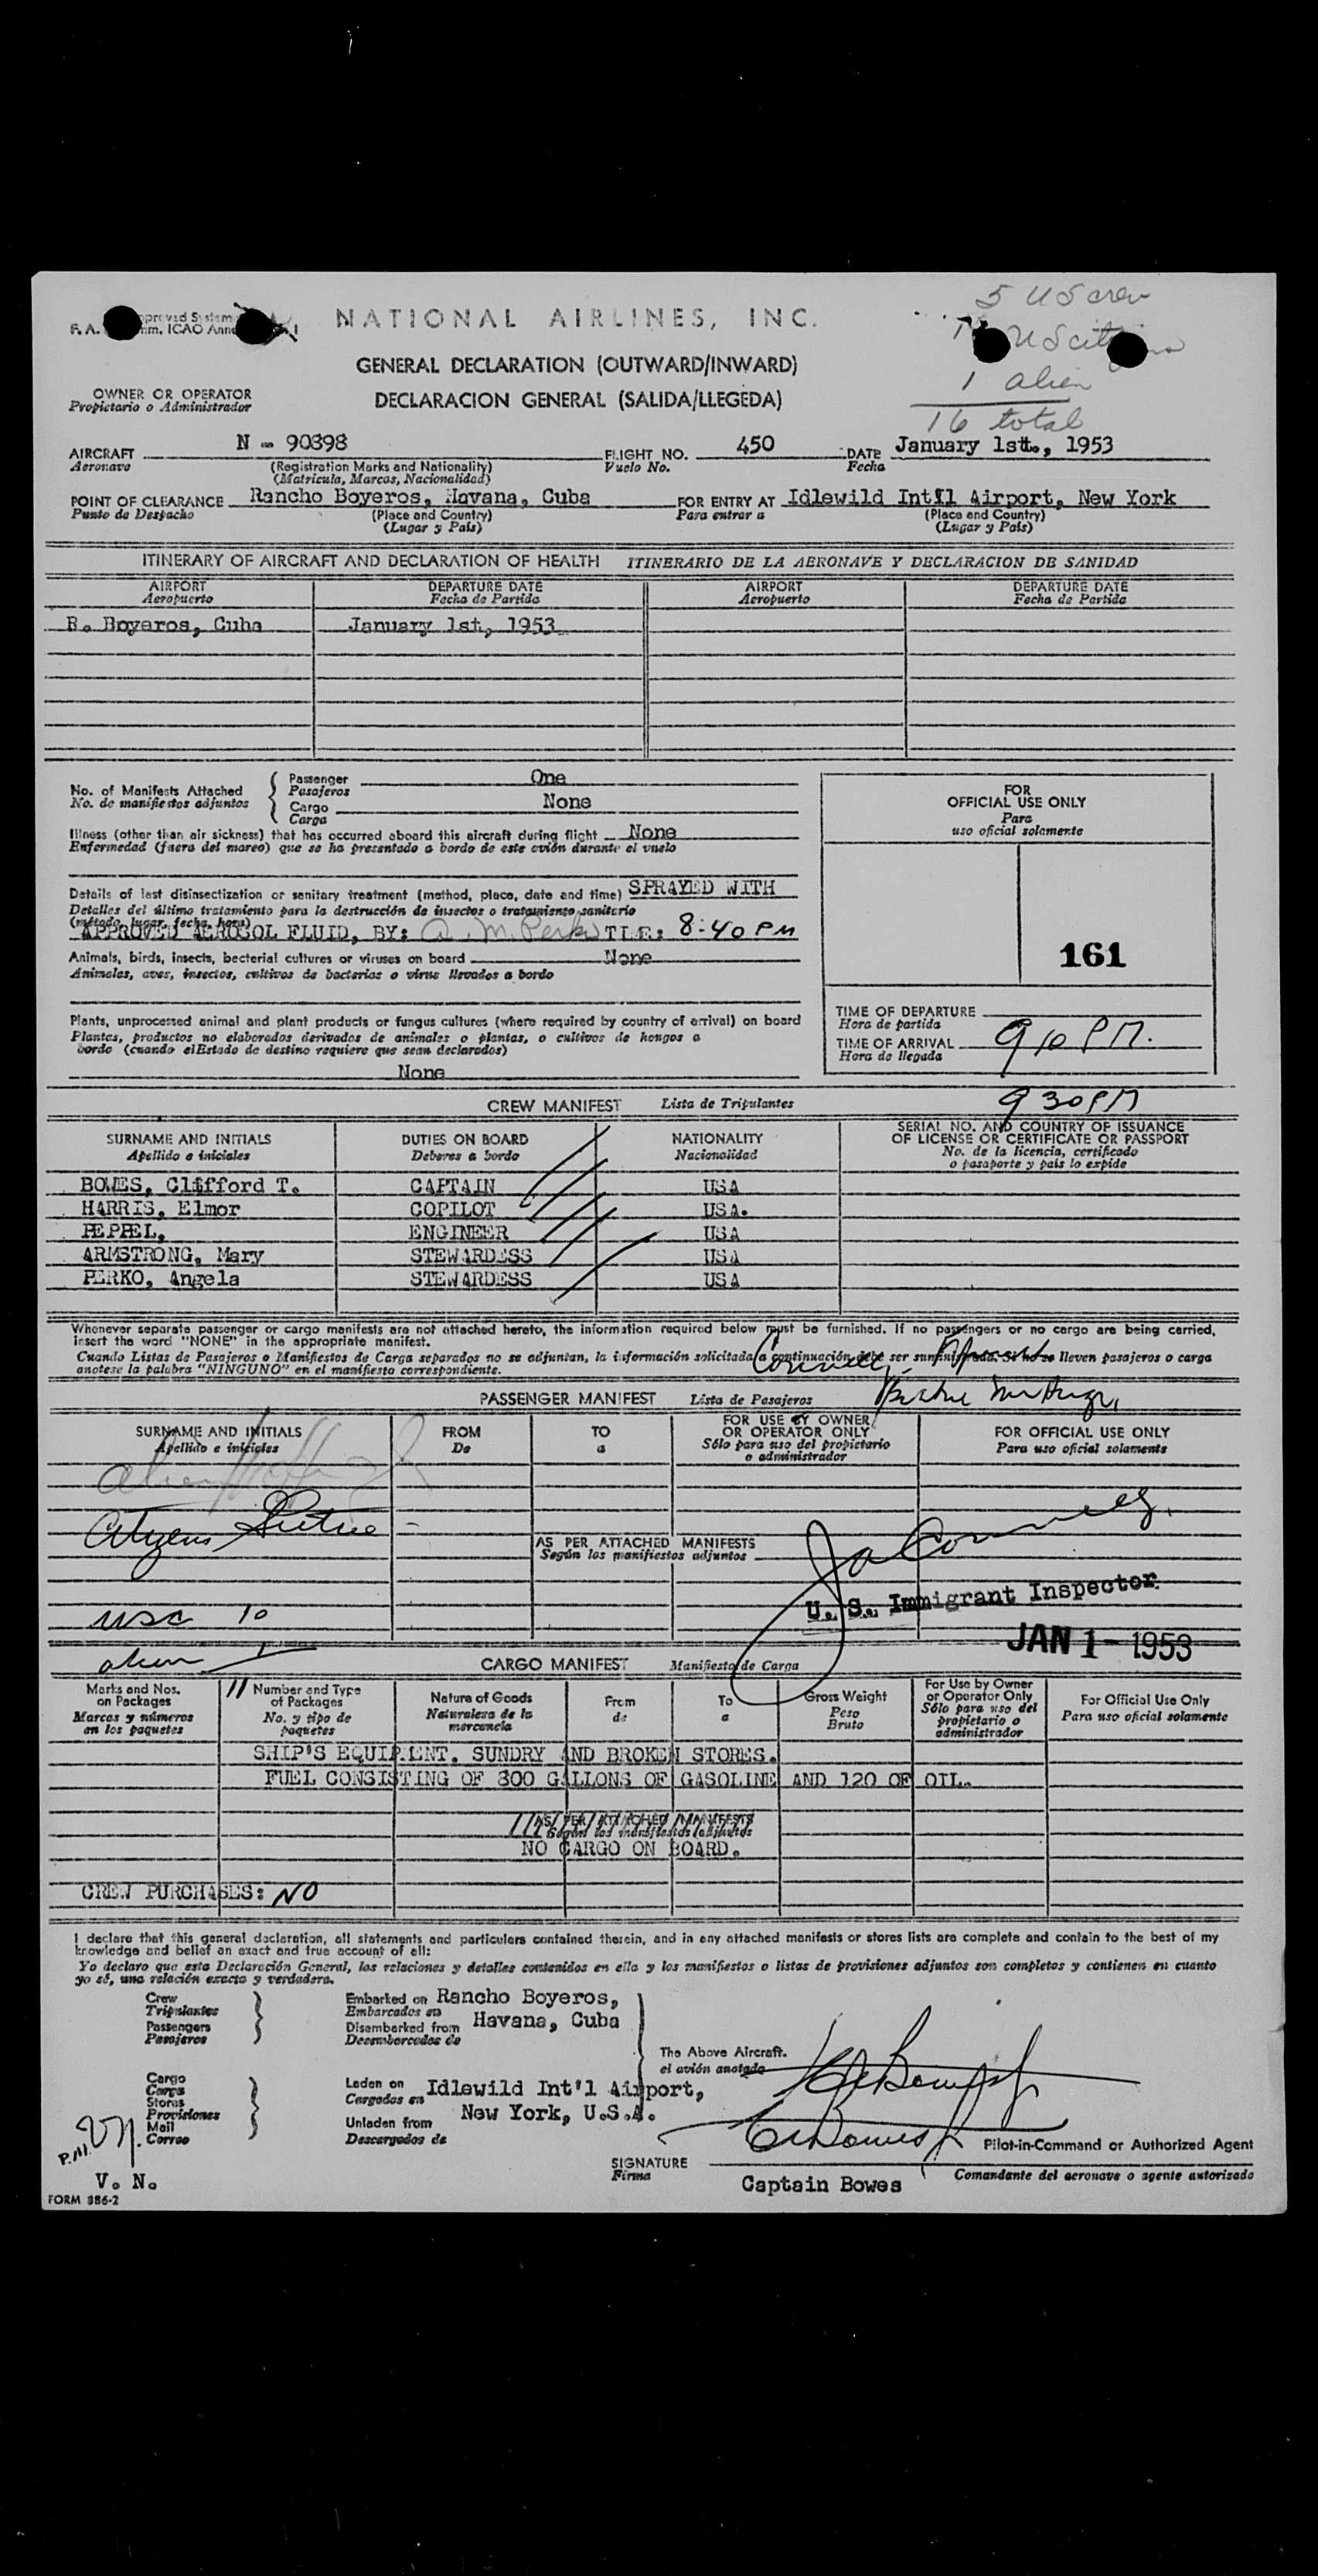 5 US crew
NATIONAL AIRLINES, INC.
US citizens
GENERAL DECLARATION (OUTWARD/INWARD)
1 alien
OWNER OR OPERATOR
Propietario o Administrador
DECLARACION GENERAL (SALIDA/LLEGEDA)
16 total
AIRCRAFT N - 90898 FLIGHT NO. 450 DATE January 1stt., 1953
Aeronave (Registration Marks and Nationality) Vuelo No. Fecha
(Matricula, Marcas, Nacionalidad)
POINT OF CLEARANCE Rancho Boyeros, Havana, Cuba FOR ENTRY AT Idlewild Int'l Airport, New York
Punto de Despacho (Place and Country) Para entrar a (Place and Country)
(Lugar y País) (Lugar y País)
ITINERARY OF AIRCRAFT AND DECLARATION OF HEALTH ITINERARIO DE LA AERONAVE Y DECLARACION DE SANIDAD
AIRPORT DEPARTURE DATE AIRPORT DEPARTURE DATE
Aeropuerto Fecha de Partida Aeropuerto Fecha de Partida
R. Boyeros, Cuba January 1st, 1953
No. of Manifests Attached Passenger One
No. de manifiestos adjuntos Pasajeros
Cargo None
Carga
FOR
OFFICIAL USE ONLY
Para
uso oficial solamente
Illness (other than air sickness) that has occurred aboard this aircraft during flight None
Enfermedad (fuera del mareo) que se ha presentado a bordo de este avión durante el vuelo
Details of last disinsectization or sanitary treatment (method, place, date and time) SPRAYED WITH
Detalles del último tratamiento para la destrucción de insectos o tratamiento sanitario
(método, lugar, fecha, hora)
APPROVED AEROSOL FLUID, BY: A. M. Perko TIE: 8:40 PM
161
Animals, birds, insects, becterial cultures or viruses on board None
Animales, aves, insectos, cultivos de bacterias o virus llevados a bordo
Plants, unprocessed animal and plant products or fungus cultures (where required by country of arrival) on board
Plantas, productos no elaborados derivados de animales o plantas, o cultivos de hongos a
bordo (cuando elEstado de destino requiere que sean declarados)
None
TIME OF DEPARTURE
Hora de partida
TIME OF ARRIVAL 9 10 PM.
Hora de llegada
9 30 PM
CREW MANIFEST Lista de Tripulantes
SURNAME AND INITIALS DUTIES ON BOARD NATIONALITY SERIAL NO. AND COUNTRY OF ISSUANCE
OF LICENSE OR CERTIFICATE OR PASSPORT
Apellido e iniciales Deberes a bordo Nacionalidad No. de la licencia, certificado
o pasaporte y país lo expide
BOWES, Clifford T. CAPTAIN USA
HARRIS, Elmor COPILOT USA.
PEPPEL, ENGINEER USA
ARMSTRONG, Mary STEWARDESS USA
PERKO, Angela STEWARDESS USA
Whenever separate passenger or cargo manifests are not attached hereto, the information required below must be furnished. If no passengers or no cargo are being carried,
insert the word "NONE" in the appropriate manifest.
Cuando Listas de Pasajeros o Manifiestos de Carga separados no se adjuntan, la información solicitada a continuación debe ser suministrada. Si no se lleven pasajeros o carga
anotese la palabra "NINGUNO" en el manifiesto correspondiente.
PASSENGER MANIFEST Lista de Pasajeros
SURNAME AND INITIALS FROM TO FOR USE BY OWNER OR OPERATOR ONLY FOR OFFICIAL USE ONLY
Apellido e iniciales De a Sólo para uso del propietario o administrador Para uso oficial solamente
AS PER ATTACHED MANIFESTS
Según los manifiestos adjuntos
U. S. Immigrant Inspector
usc 10
JAN 1 - 1953
alien 1
11
CARGO MANIFEST Manifiesto de Carga
Marks and Nos. on Packages Number and Type of Packages Nature of Goods From To Gross Weight For Use by Owner or Operator Only For Official Use Only
Marcas y números en los paquetes No. y tipo de paquetes Naturaleza de la mercancia de a Peso Bruto Sólo para uso del propietario o administrador Para uso oficial solamente
SHIP'S EQUIPMENT, SUNDRY AND BROKEN STORES.
FUEL CONSISTING OF 800 GALLONS OF GASOLINE AND 120 OF OIL.
AS PER ATTACHED MANIFESTS
Según los manifiestos adjuntos
NO CARGO ON BOARD.
CREW PURCHASES: NO
I declare that this general declaration, all statements and particulars contained therein, and in any attached manifests or stores lists are complete and contain to the best of my
knowledge and belief an exact and true account of all:
Yo declaro que esta Declaración General, las relaciones y detalles contenidos en ella y los manifiestos o listas de provisiones adjuntos son completos y contienen en cuanto
yo sé, una relación exacta y verdadera.
Crew Embarked on Rancho Boyeros,
Tripulantes Embarcados en
Passengers Disembarked from Havana, Cuba
Pasajeros Desembarcados de
The Above Aircraft.
el avión anotado
Cargo Laden on Idlewild Int'l Airport,
Carga Cargados en
Stores
Provisiones Unladen from New York, U.S.A.
Mail
Correo Descargados de
P.M.
Pilot-in-Command or Authorized Agent
SIGNATURE
Firma
Comandante del aeronave o agente autorizado
Captain Bowes
V. N.
FORM 386-2